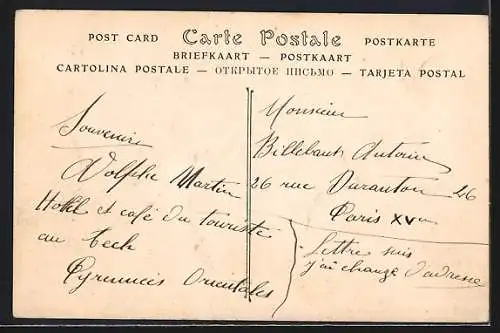 POST CARD Carte Postale POSTKARTE
BRIEFKAART — POSTKAART
CARTOLINA POSTALE — ОТКРЫТОЕ ПИСЬМО — TARJETA POSTAL
Souvenir
Adolphe Martin
Hotel et café du touriste
au tech
Pyrennées Orientales
Monsieur
Billebaut Antoine
26 rue Duranton 26
Paris XVem
Lettre suis
j'ai changé d'adresse